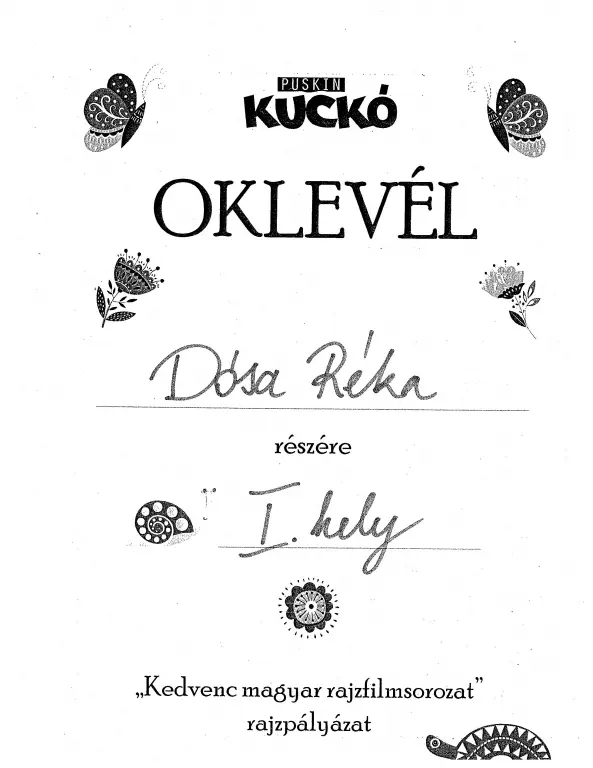 PUSKIN
KUCKÓ
OKLEVÉL
Dósa Réka
részére
I. hely
„Kedvenc magyar rajzfilmsorozat”
rajzpályázat